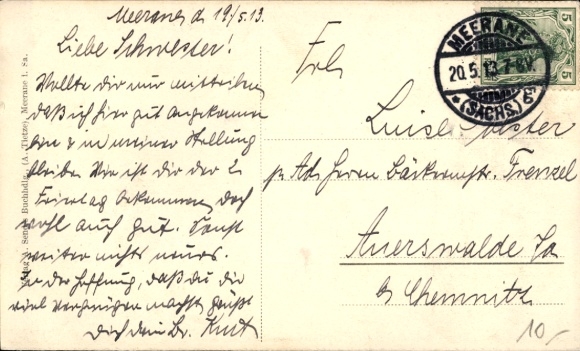 Meerane, d. 19/5.13.
Liebe Schwester!
Wollte dir nur mitteilen
daß ich hier gut angekommen
bin & in meiner Stellung
bleibe. Wie ist dir der 2.
Feiertag bekommen, doch
wohl auch gut. Sonst
weiter nichts neues.
In der Hoffnung, daß du dir
viel Vergnügen machst, grüßt
Dich dein Br. Kurt
Verlag v. Buchhdlg. (A. Tietze), Meerane i. Sa.
MEERANE
20.5.13.7-8V.
*(SACHS.)
5
5
Frl.
Luise
p. Ad. Herrn Bäckermstr. Frenzel
Auerswalde Sa
b/ Chemnitz
10,-